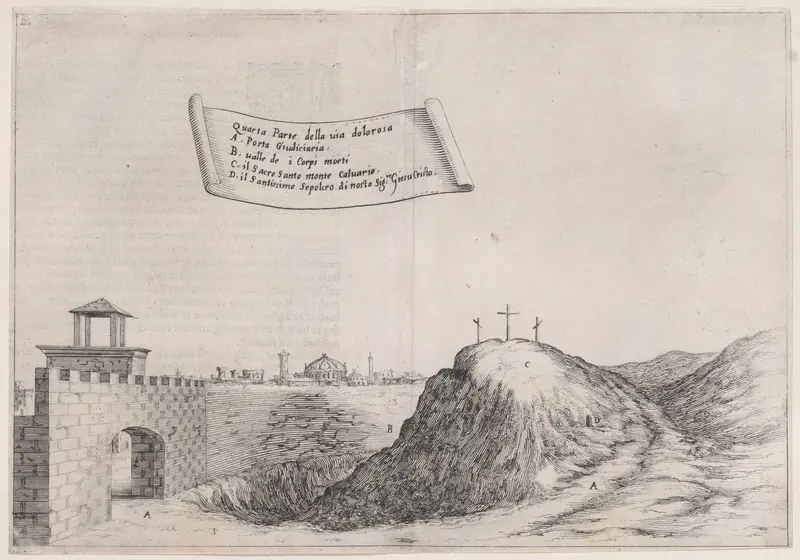 Quarta Parte della uia dolorosa
A. Porta Giudiciaria.
B. ualle de i Corpi morti
C. il Sacro Santo monte Caluario.
D. il Santissimo Sepolcro di nosto Sig.re Giesu Cristo.
C
D
B
A
A